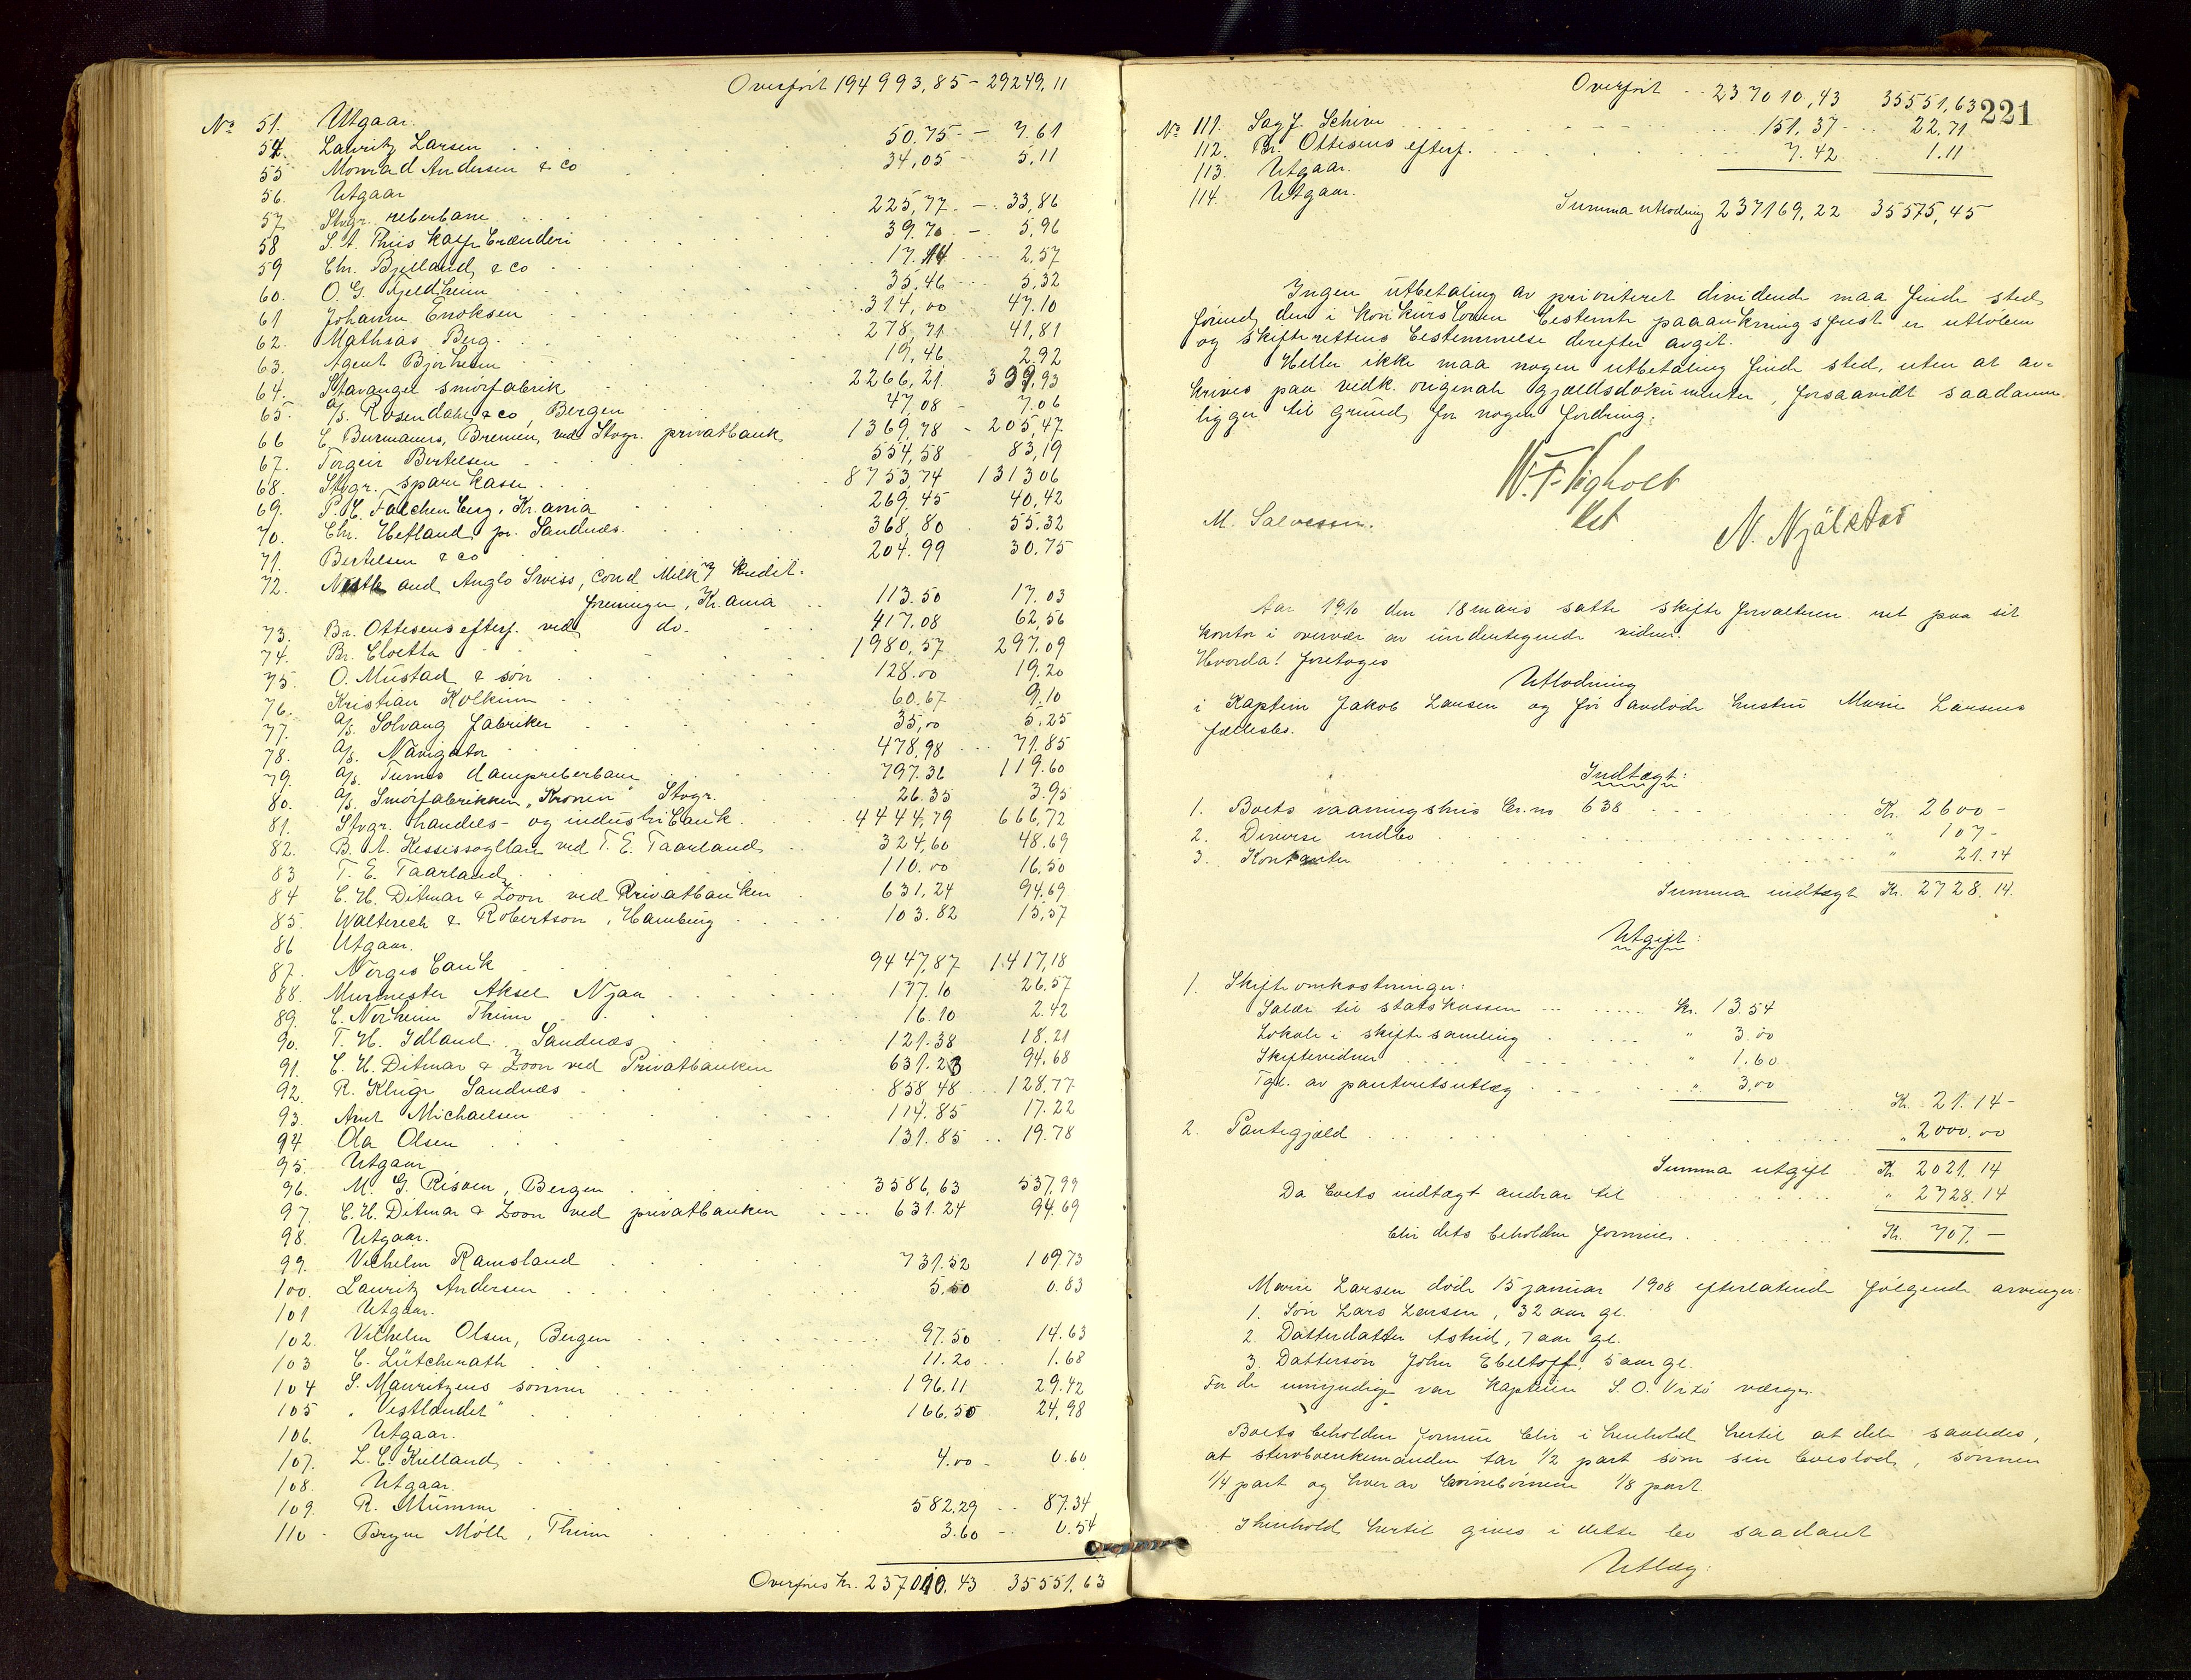 Overført 194993,85 - 29249,11
No 51. Utgaar.
54. Lauritz Larsen 50.75 - 7.61
55 Monrad Andersen & Co 34,05 - 5,11
56. Utgaar
57. Stvgr. reberbane 225,77 - 33,86
58 S. A. Thiis kaffebrænderi 39.70 - 5,96
59 Chr. Bjelland & Co 17.14 2.57
60. O. G. Fjeldheim 35,46 5,32
61 Johanne Enoksen 314,00 47.10
62. Mathias Berg 278,71 41,81
63. Agent Bjørheim 19,46 2.92
64. Stavanger smørfabrik 2266,21 339,93
65. A/S. Rosendahl & Co, Bergen 47,08 - 7.06
66 C. Burmanns, Bremen, ved Stvgr. privatbank 1369,78 - 205,47
67. Torgeir Bertelsen 554,58 83,19
68. Stvgr. sparekasse 8753,74 131306
69. P. C. Falchenberg, Kr.ania 269,45 40,42
70. Chr. Hetland pr. Sandnæs 368,80 55.32
71. Bertelsen & Co 204.99 30.75
72. Nestle and Anglo Swiss, Cond Milk ved Kredit-
foreningen, Kr.ania 113.50 17.03
73. Br. Ottesens efterf. ved do. 417,08 62,56
74. Br. Cloetta 1980,57 297,09
75. O. Mustad & søn 128.00 19.20
76. Kristian Kolkinn 60.67 9.10
77. A/S. Solvang fabriker 35,00 5.25
78. A/S. Navigator 478,98 71.85
79. A/S. Tumes dampreberbane 797.36 119.60
80. A/S. Smørfabrikken "Kronen" Stvgr. 26.35 3.95
81. Stvgr. handels- og industribank 4444,79 666,72
82. B. A. Kessissogllan ved T. E. Taarland 324,60 48.69
83 T. E. Taarland 110.00 16.50
84 C. H. Ditmar & Zoon ved Privatbanken 631,24 94.69
85. Walterech & Robertson, Hamburg 103.82 15,57
86 Utgaar.
87. Norges bank 9447,87 1417,18
88. Murmester Aksel Njaa 177.10 26.57
89. C. Norheim Thime 16.10 2.42
90. T. H. Idland. Sandnæs 121.38 18.21
91. C. H. Ditmar & Zoon ved Privatbanken 631.23 94.68
92. R. Kluge Sandnæs 858,48 128.77
93. Arnt Michaelsen 114.85 17.22
94 Ola Olsen 131.85 19.78
95. Utgaar
96. M. G. Risøen, Bergen 3586,63 537,99
97. C. H. Ditmar & Zoon ved privatbanken 631.24 94.69
98. Utgaar.
99. Vilhelm Ramsland 731.52 109.73
100. Lauritz Andersen 5.50 0.83
101 Utgaar.
102. Vilhelm Olsen, Bergen 97.50 14.63
103 C. Lütcherath 11.20 1.68
104 S. Mauritzens sønner 196.11 29.42
105 "Vestlandet" 166.50 24,98
106. Utgaar.
107. L. C. Kielland 4.00 - 0.60
108. Utgaar.
109. R. Mumme 582.29 87.34
110 - Bryne Mølle, Thime 3.60 - 0.54
Overføres kr. 237010,43 35551,63
221
Overført 237010,43 35551,63
No 111. Sagf. Schive 151,37 22,71
112. Br. Ottesens efterf. 7.42 1.11
113. Utgaar.
114. Utgaar.
Summa utlodning 237169,22 35575,45
Ingen utbetaling av prioritert dividende maa finde sted
førend den i konkursloven bestemte paaankningsfrist er utløben
og skifterettens bestemmelse derefter avgit.
Heller ikke maa nogen utbetaling finde sted, uten at av-
skrives paa vedk. originale gjældsdokumenter, forsaavidt saadanne
ligger til grund for nogen fordring.
M. Salvesen.
N. Njålstad
Aar 1910 den 18 mars satte skifteforvalteren ret paa sit
kontor i overvær av undertegnede vidner.
Hvorda! foretoges
Utlodning
i Kaptein Jakob Larsen og før avdøde hustru Marie Larsens
fællesbo.
Indtægt:
1. Boets vaaningshus br.no 638 Kr. 2600 -
2. Diverse indbo " 107 -
3. Kontanter " 21.14
Summa indtægt Kr. 2728.14.
Utgift:
1. Skifteomkostninger:
Salær til statskassen Kr. 13.54
Lokale i skiftesamling " 3.00
Skiftevidner " 1.60
Tgl. av panteretsutlæg " 3,00
Kr. 21.14 -
2. Pantegjæld " 2000.00
Summa utgift Kr. 2021.14
Da boets indtægt andrar til " 2728.14
blir dets beholdne formue Kr. 707. -
Marie Larsen døde 15 januar 1908 efterlatende følgende arvinger:
1. Søn Lars Larsen, 32 aar gl.
2. Datterdatter Astrid, 7 aar gl.
3. Dattersøn John Ebeltoft, 5 aar gl.
For de umyndige var kaptein S. O. Vixø værge.
Boets beholdne formue blir i henhold hertil at dele saaledes,
at stervboenkemanden tar 1/2 part som sin boeslod, sønnen
1/4 part og hver av børnebørnene 1/8 part.
I henhold hertil gives i dette bo saadant
Utlæg: